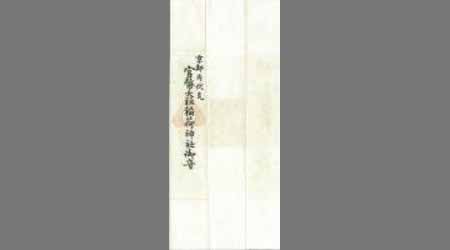 京都伏見
官幣大社稲荷神社御